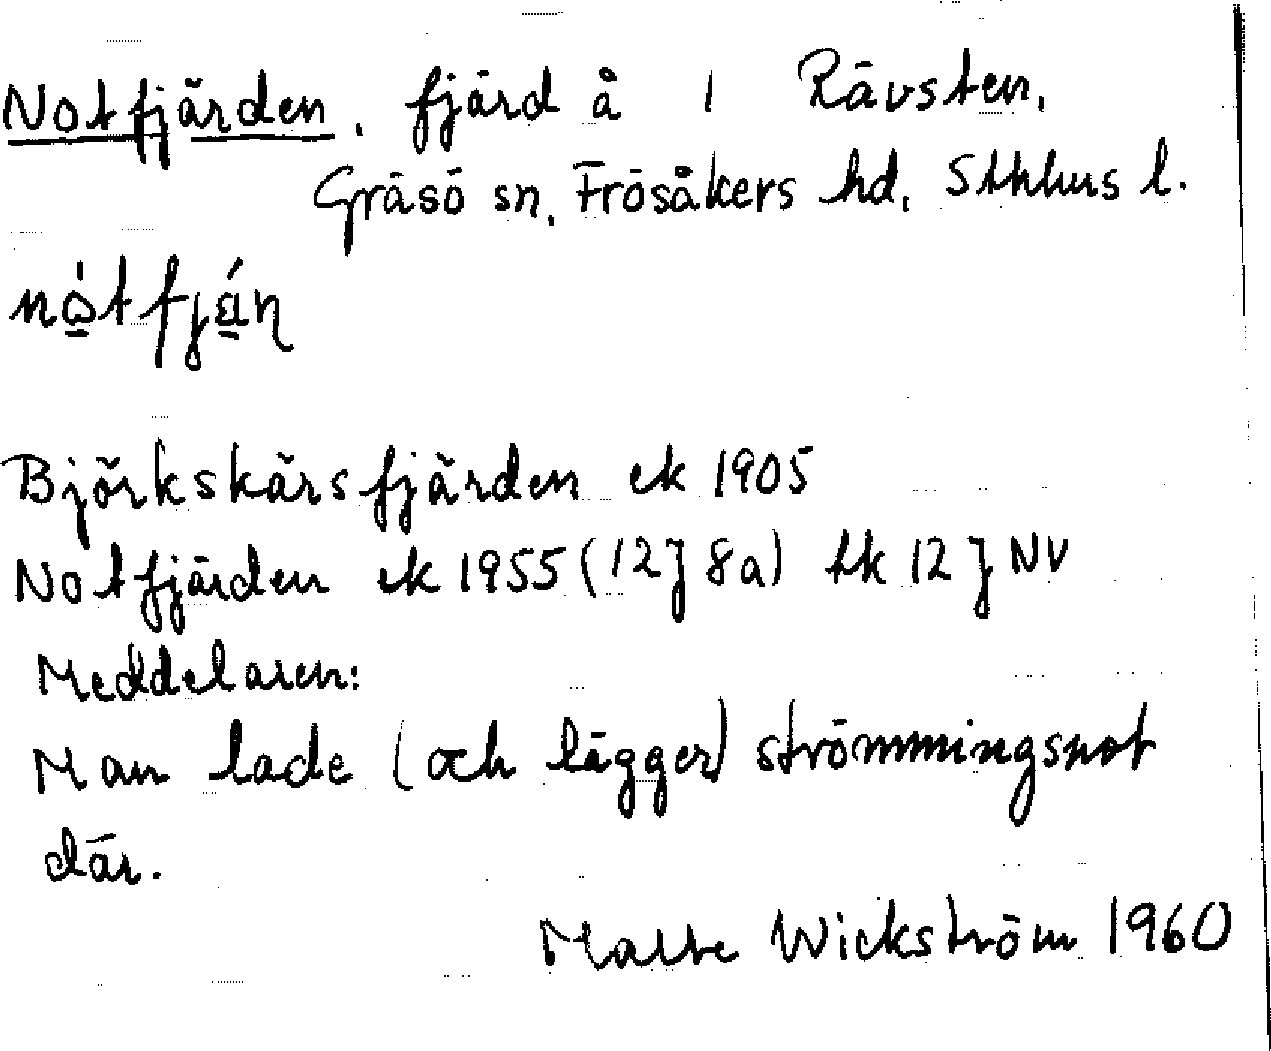 Notfjärden, fjärd å 1 Rävsten,
Gräsö sn, Frösåkers hd, Sthlms l.
Björkskärsfjärden ek 1905
Notfjärden ek 1955 (12J 8a) tk 12 J NV
Meddelaren:
Man lade (och lägger) strömmingsnot
där.
Malte Wickström 1960